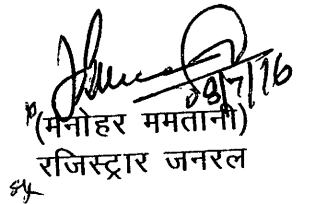 08/7/16
(मनोहर ममतानी)
रजिस्ट्रार जनरल